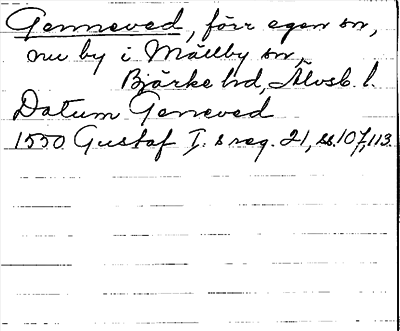 Genneved, förr egen sn,
nu by i Mällby sn,
Bjärke hd, Älvsb. l.
Datum Geneved
1550 Gustaf I. s reg. 21, ss. 107, 113.